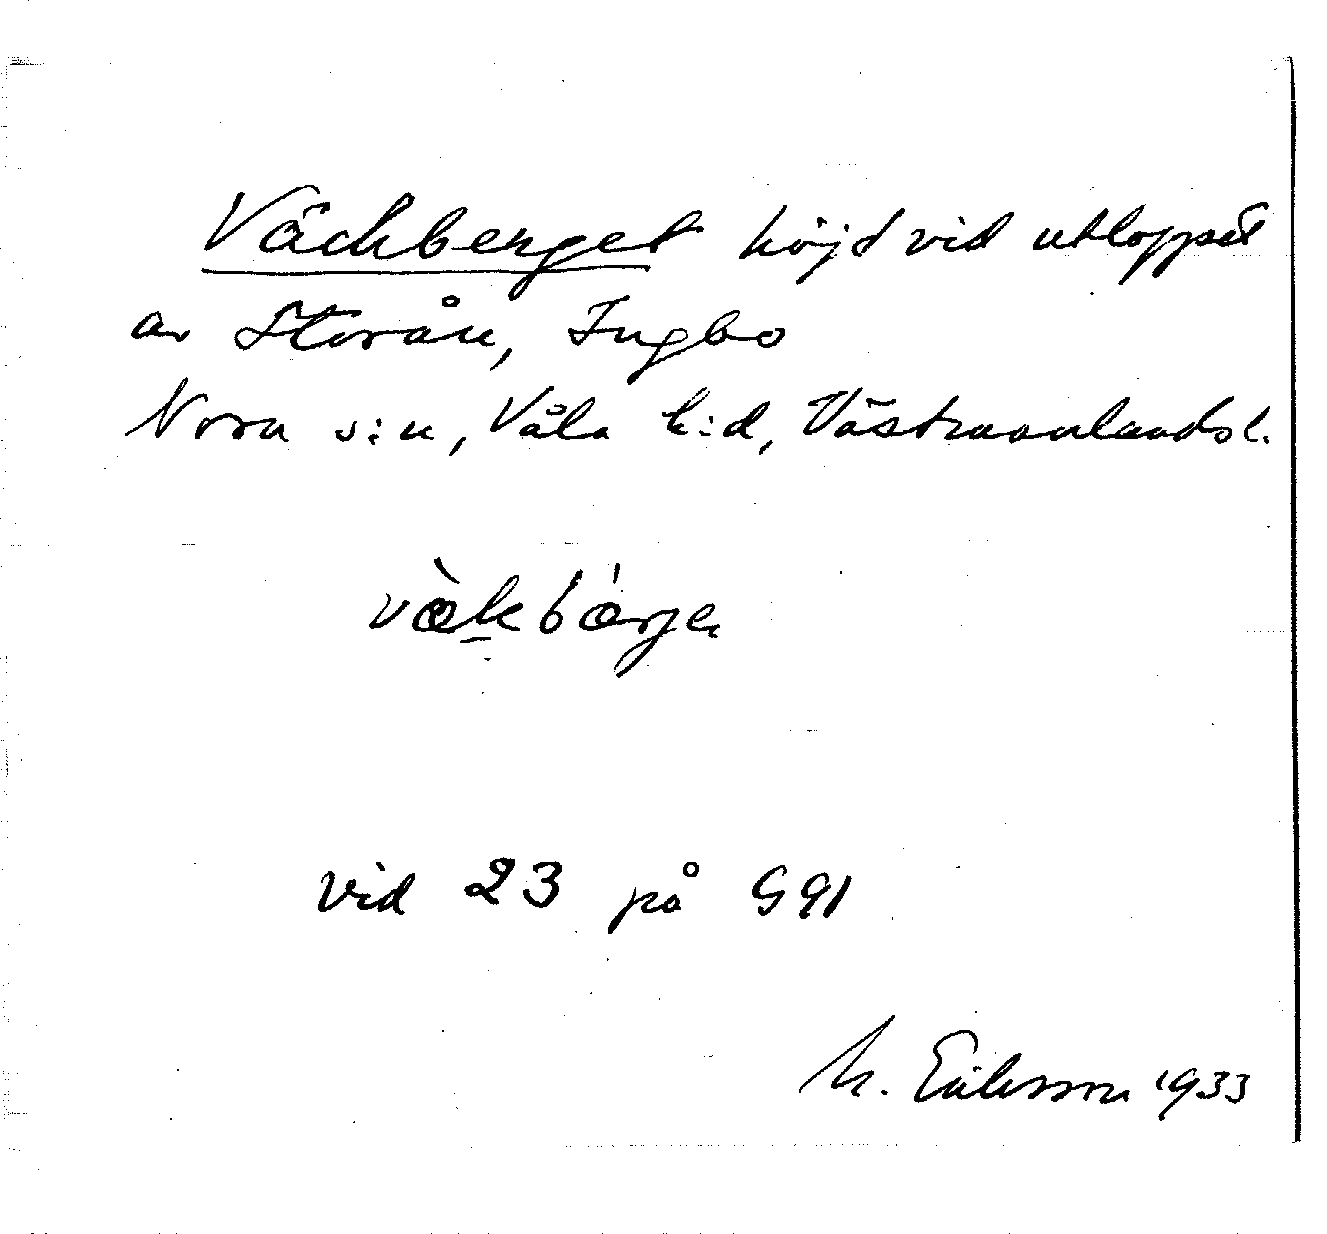 Väckberget höjd vid utloppet
av Storån, Ingbo
Nora s:n, Våla h:d, Västmanlands l.
væ̀kbærje
vid 23 på G91
M. Eriksson 1933